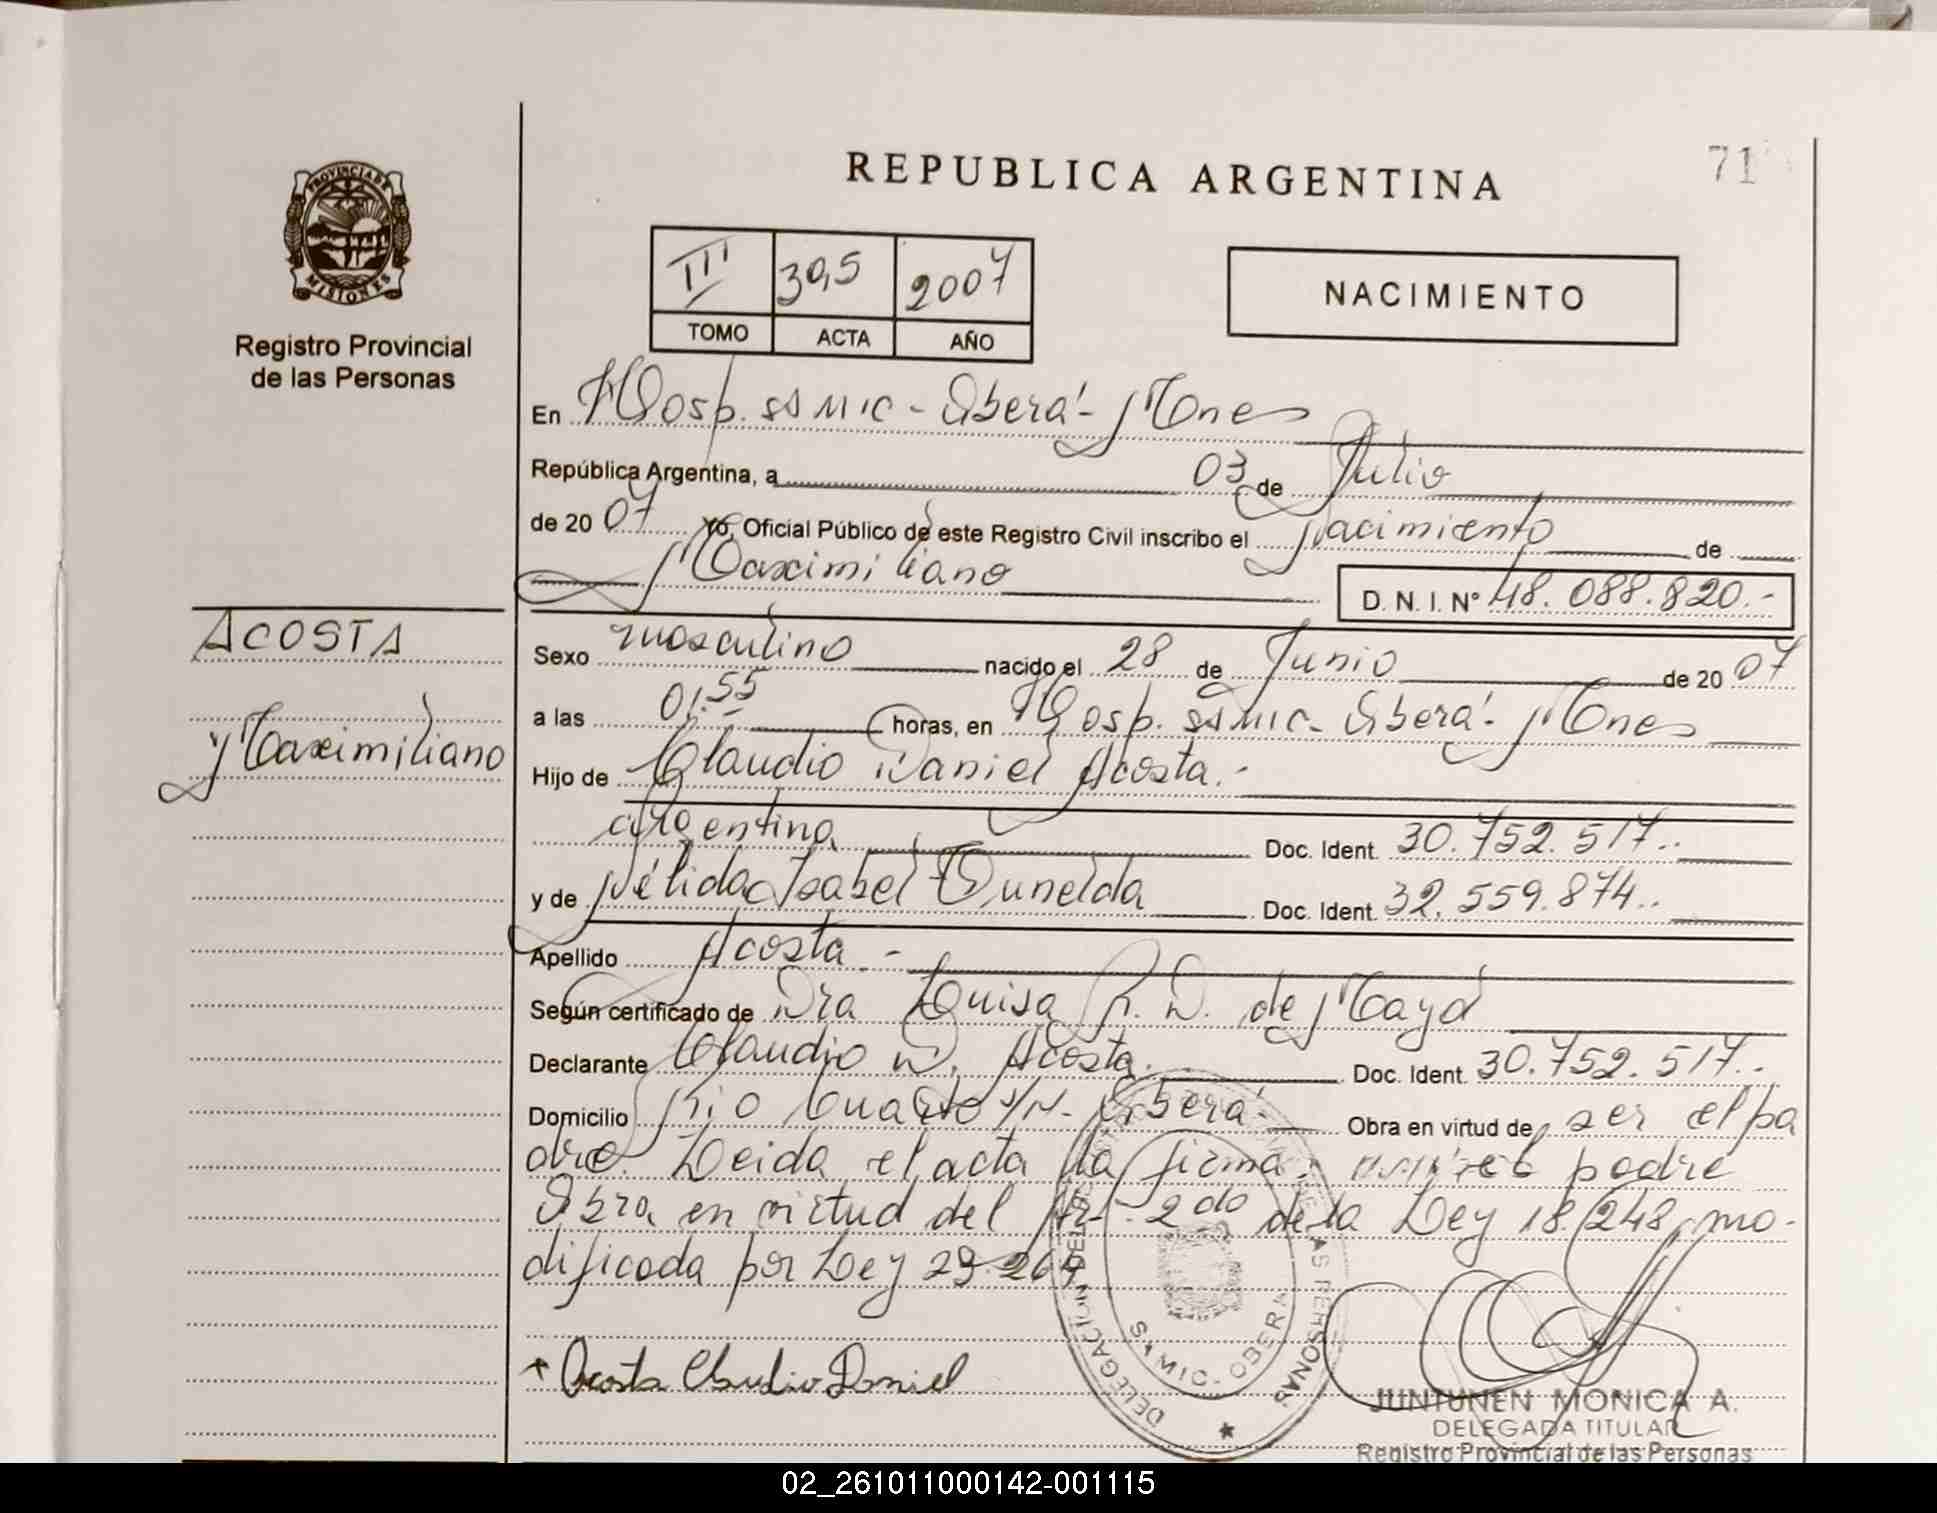 REPUBLICA ARGENTINA
71
PROVINCIA DE
MISIONES
Registro Provincial
de las Personas
III 305 2007
TOMO ACTA AÑO
NACIMIENTO
En Hosp. SAMIC - Oberá - Mnes
República Argentina, a 03 de Julio
de 20 07 Yo, Oficial Público de este Registro Civil inscribo el Nacimiento de
Maximiliano D. N. I. N° 48.088.820.-
ACOSTA
Maximiliano
Sexo masculino nacido el 28 de Junio de 20 07
a las 01.55 horas, en Hosp. SAMIC - Oberá - Mnes
Hijo de Claudio Daniel Acosta.-
argentina Doc. Ident. 30.752.517..
y de Nélida Isabel Doc. Ident. 32.559.874..
Apellido Acosta -
Según certificado de Dra Luisa R. D. de
Declarante Claudio D. Acosta. Doc. Ident. 30.752.517..
Domicilio Rio Cuarto S/N - Oberá - Obra en virtud de ser el pa
dre. Leida el acta la firma padre
Obra en virtud del Ar. 2do de la Ley 18.248, mo-
dificada por Ley 23.264
Acosta Claudio Daniel
DELEGACION DEL DE LAS PERSONAS
SAMIC - OBERA
JUNTUNEN MONICA A.
DELEGADA TITULAR
Registro Provincial de las Personas
02_261011000142-001115